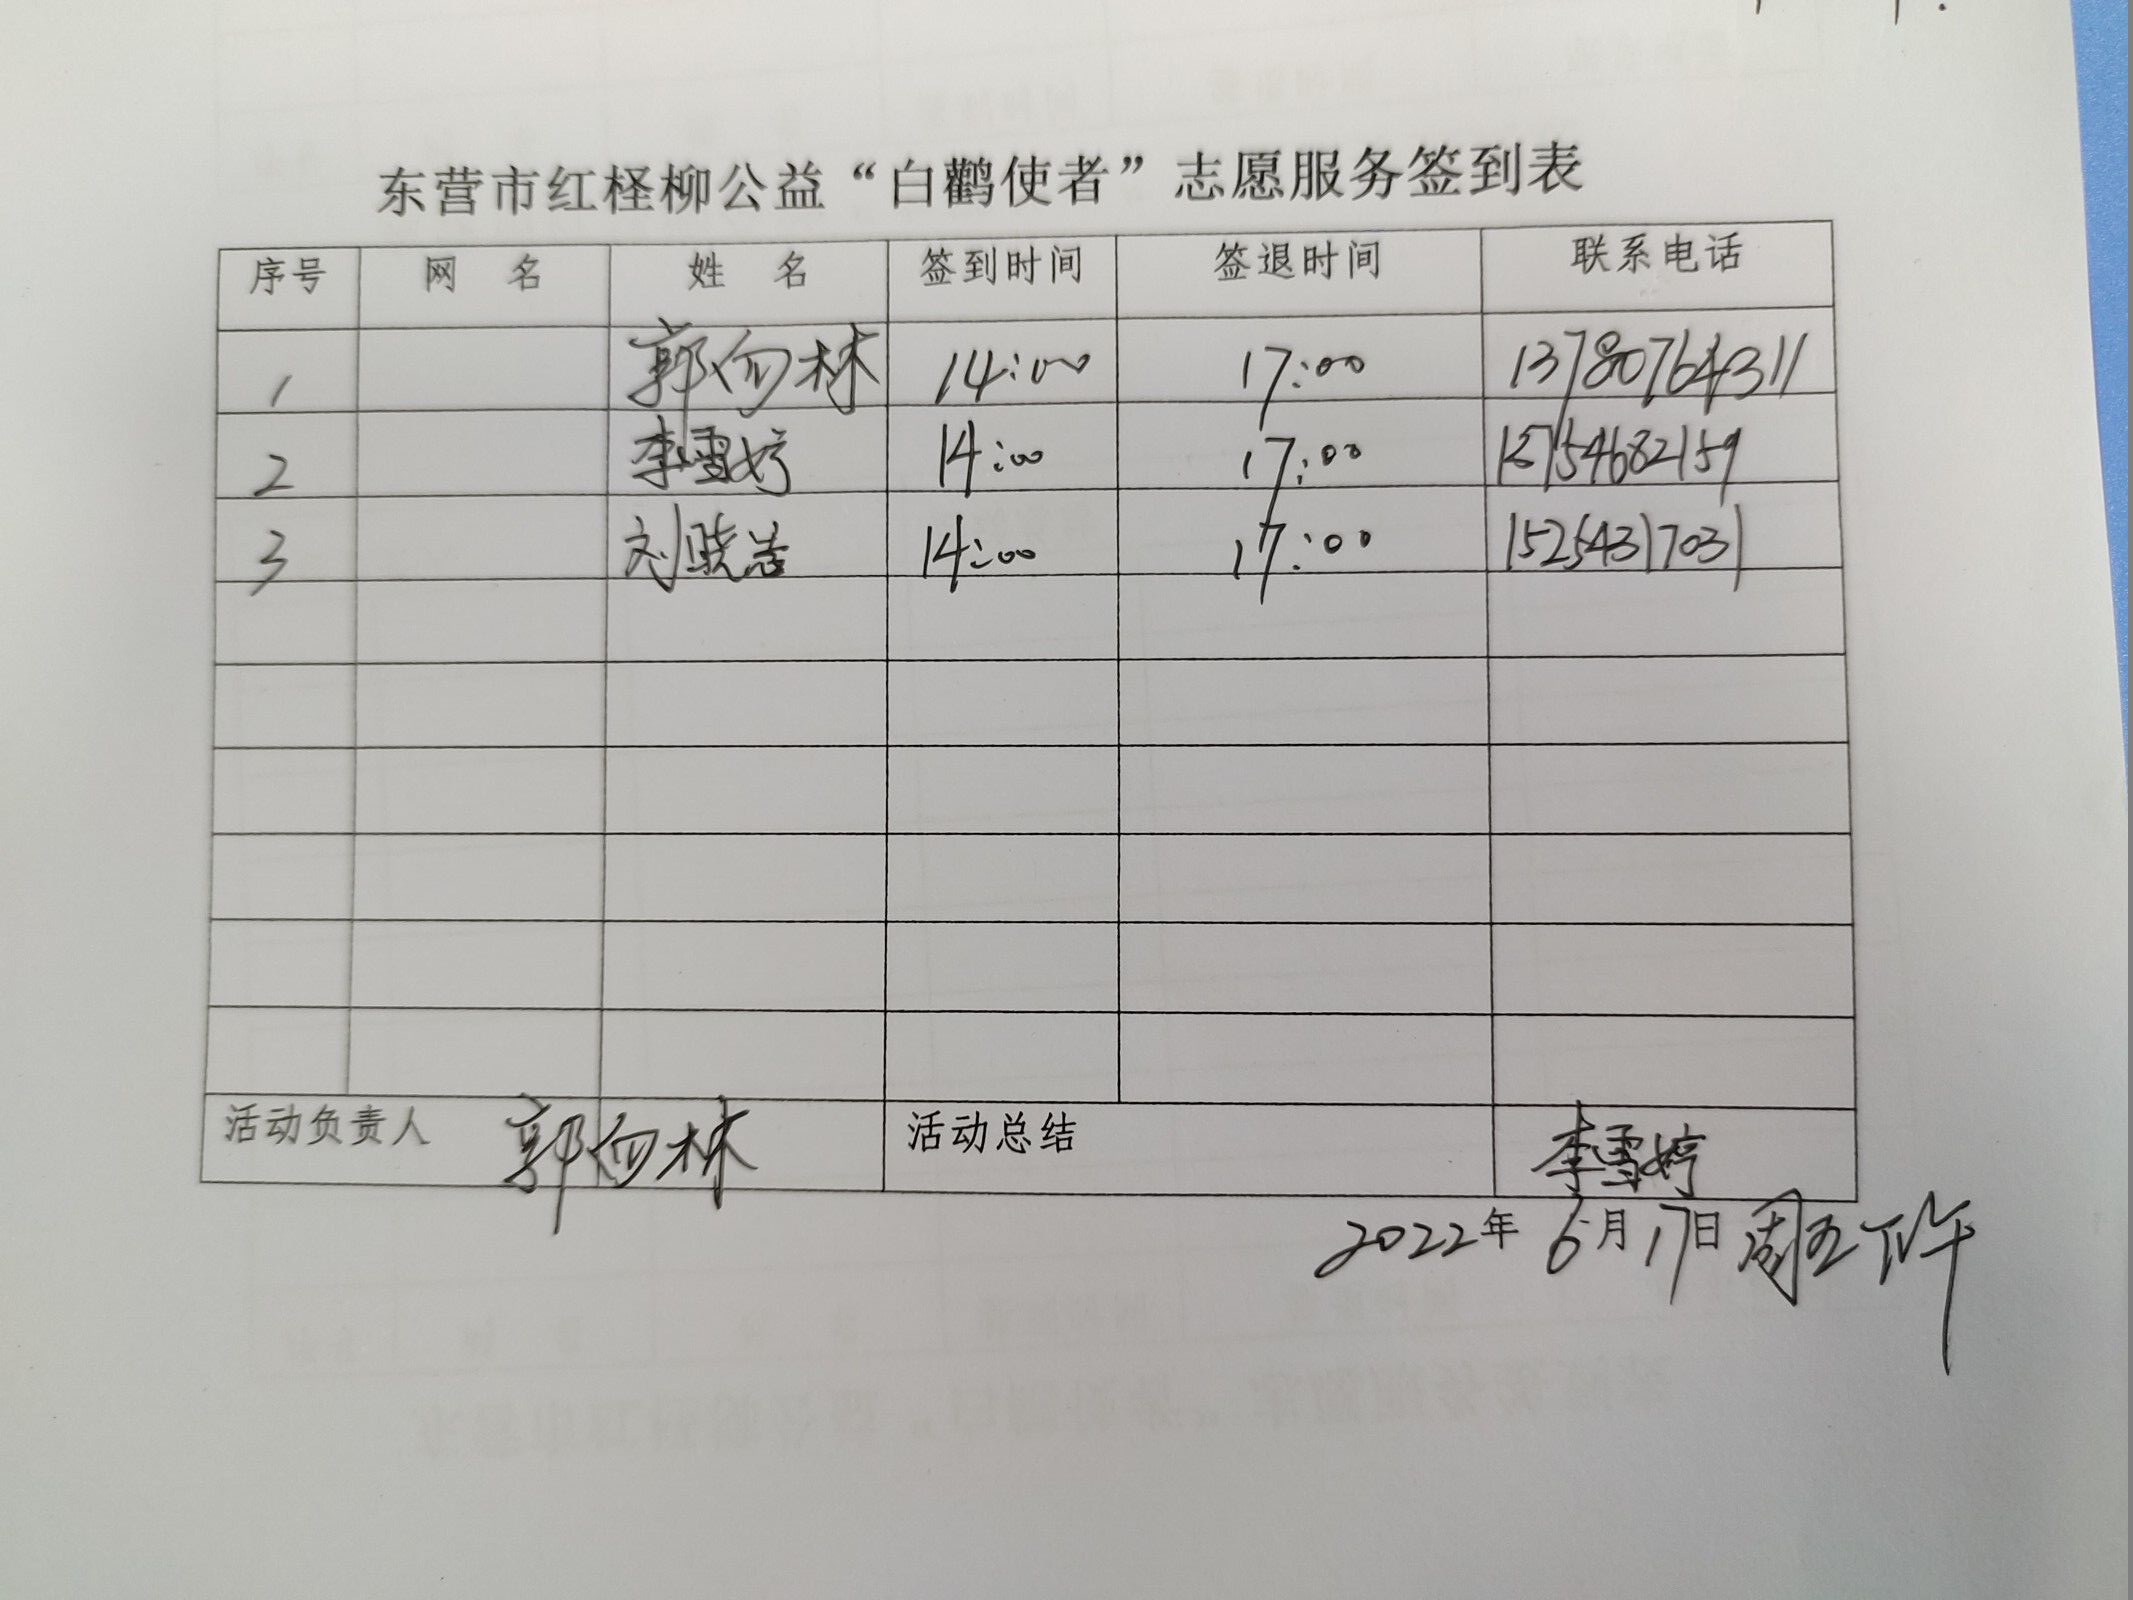 东营市红柽柳公益“白鹳使者”志愿服务签到表
序号 网 名 姓 名 签到时间 签退时间 联系电话
1 郭向林 14:00 17:00 13780764311
2 李雪婷 14:00 17:00 15754682159
3 刘晓 14:00 17:00 15254317031
活动负责人 郭向林 活动总结 李雪婷
2022年 6月17日 周五下午